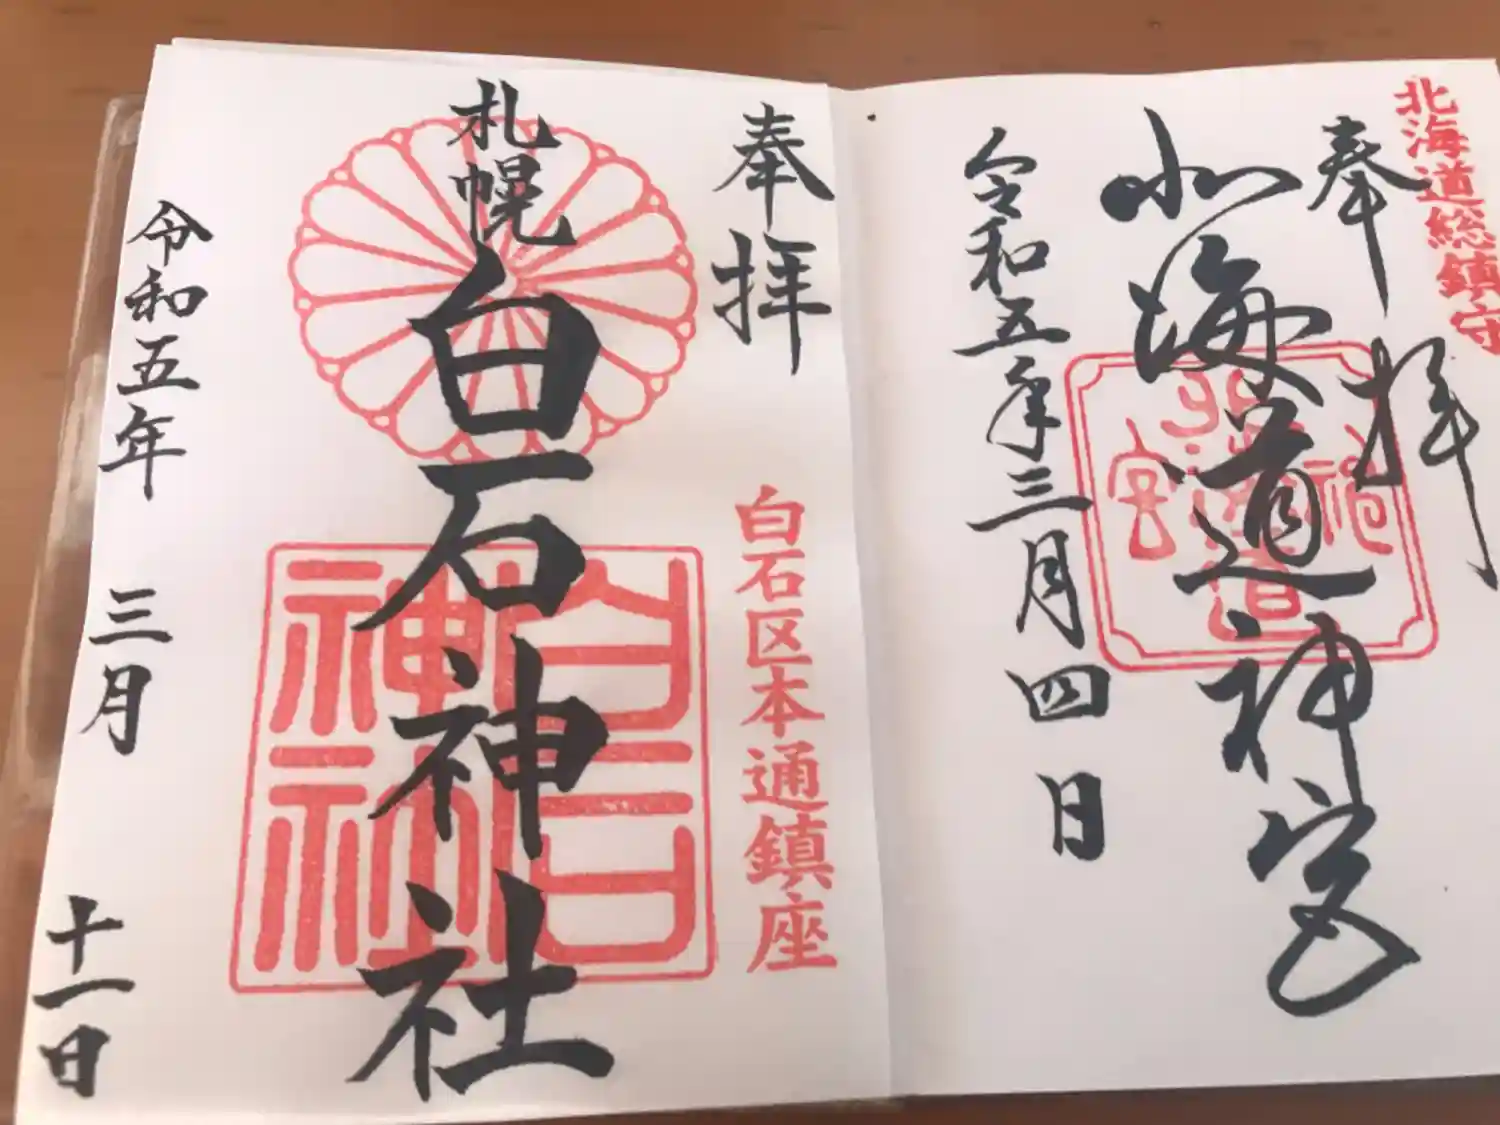 北海道総鎮守
奉拝
北海道神宮
令和五年三月四日
奉拝
白石区本通鎮座
札幌白石神社
白石神社
令和五年 三月 十一日